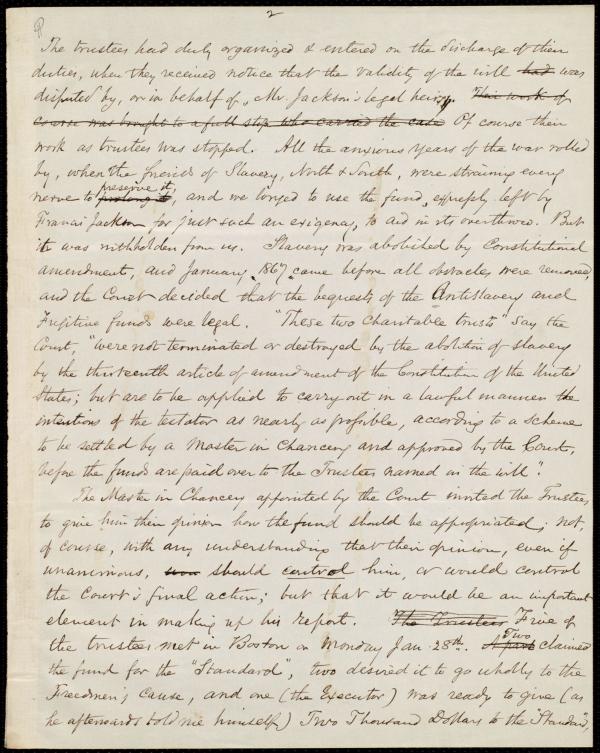 2
The trustees had duly organized & entered on the discharge of their
duties, when they received notice that the validity of the will had was
disputed by, or in behalf of, Mr. Jackson's legal heirs. Their work of
course was brought to a full stop who carried the case Of course their
work as trustees was stopped. All the anxious years of the war rolled
by, when the friends of Slavery, North & South, were straining every
preserve it,
nerve to prolong it, and we longed to use the fund, expressly left by
Francis Jackson for just such an exigency, to aid in its overthrow. But
it was withholden from us. Slavery was abolished by Constitutional
amendment, and January, 1867, came before all obstacles were removed,
and the Court decided that the bequests of the Antislavery and
Fugitive funds were legal. "These two Charitable trusts" say the
Court, "were not terminated or destroyed by the abolition of slavery
by the thirteenth article of amendment of the Constitution of the United
States; but are to be applied to carry out in a lawful manner the
intentions of the testator as nearly as possible, according to a scheme
to be settled by a Master in Chancery and approved by the Court,
before the funds are paid over to the Trustees named in the will".
The Master in Chancery appointed by the Court invited the Trustees
to give him their opinion how the fund should be appropriated; not,
of course, with any understanding that their opinion, even if
unanimous, should control him, or would control
the Court's final action; but that it would be an important
element in making up his report. The Trustees Five of
the trustees met in Boston on Monday Jan. 28th. Two claimed
the fund for the "Standard", two desired it to go wholly to the
Freedmen's cause, and one (the Executor) was ready to give (as
he afterwards told me himself) Two Thousand Dollars to the "Standard",